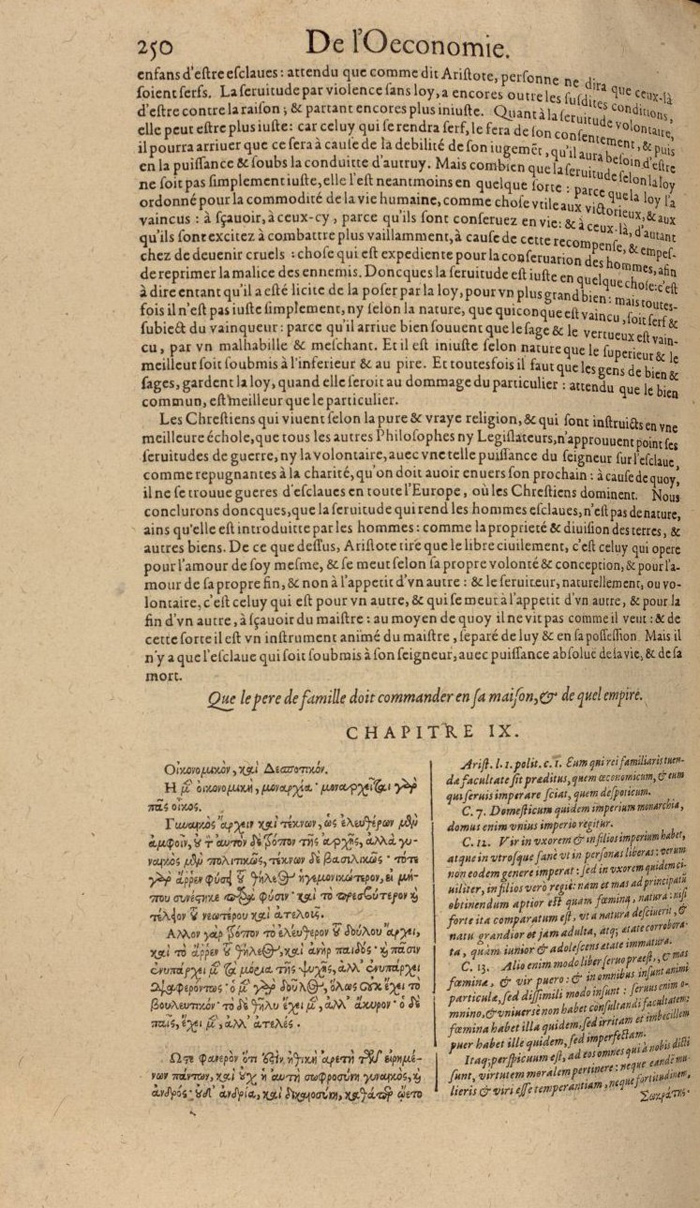 250 De l'Oeconomie.
enfans d'eſtre eſclaues : attendu que comme dit Ariſtote, perſonne ne dira que ceux-là
ſoient ſerfs. La ſeruitude par violence ſans loy, a encores outre les ſuſdites conditions,
d'eſtre contre la raiſon ; & partant encores plus iniuſte. Quant à la ſeruitude volontaire,
elle peut eſtre plus iuſte : car celuy qui ſe rendra ſerf, le fera de ſon conſentement, & puis
il pourra arriuer que ce ſera à cauſe de la debilité de ſon iugemẽt, qu'il aura beſoin d'eſtre
en la puiſſance & ſoubs la conduitte d'autruy. Mais combien que la ſeruitude ſelon la loy
ne ſoit pas ſimplement iuſte, elle l'eſt neantmoins en quelque ſorte : parce que la loy l'a
ordonné pour la commodité de la vie humaine, comme choſe vtile aux victorieux, & aux
vaincus : à ſçauoir, à ceux-cy, parce qu'ils ſont conſeruez en vie : & à ceux-là, d'autant
qu'ils ſont excitez à combattre plus vaillamment, à cauſe de cette recompenſe, & empeſ-
chez de deuenir cruels : choſe qui eſt expediente pour la conſeruation des hommes, afin
de reprimer la malice des ennemis. Doncques la ſeruitude eſt iuſte en quelque choſe : c'eſt
à dire entant qu'il a eſté licite de la poſer par la loy, pour vn plus grand bien : mais toutes-
fois il n'eſt pas iuſte ſimplement, ny ſelon la nature, que quiconque eſt vaincu, ſoit ſerf &
ſubiect du vainqueur : parce qu'il arriue bien ſouuent que le ſage & le vertueux eſt vain-
cu, par vn malhabille & meſchant. Et il eſt iniuſte ſelon nature que le ſuperieur & le
meilleur ſoit ſoubmis à l'inferieur & au pire. Et toutesfois il faut que les gens de bien &
ſages, gardent la loy, quand elle ſeroit au dommage du particulier : attendu que le bien
commun, eſt meilleur que le particulier.
Les Chreſtiens qui viuent ſelon la pure & vraye religion, & qui ſont inſtruicts en vne
meilleure échole, que tous les autres Philoſophes ny Legiſlateurs, n'approuuent point ſes
ſeruitudes de guerre, ny la volontaire, auec vne telle puiſſance du ſeigneur ſur l'eſclaue,
comme repugnantes à la charité, qu'on doit auoir enuers ſon prochain : à cauſe de quoy,
il ne ſe trouue gueres d'eſclaues en toute l'Europe, où les Chreſtiens dominent. Nous
conclurons doncques, que la ſeruitude qui rend les hommes eſclaues, n'eſt pas de nature,
ains qu'elle eſt introduitte par les hommes : comme la proprieté & diuiſion des terres, &
autres biens. De ce que deſſus, Ariſtote tire que le libre ciuilement, c'eſt celuy qui opere
pour l'amour de ſoy meſme, & ſe meut ſelon ſa propre volonté & conception, & pour l'a-
mour de ſa propre fin, & non à l'appetit d'vn autre : & le ſeruiteur, naturellement, ou vo-
lontaire, c'eſt celuy qui eſt pour vn autre, & qui ſe meut à l'appetit d'vn autre, & pour la
fin d'vn autre, à ſçauoir du maiſtre : au moyen de quoy il ne vit pas comme il veut : & de
cette ſorte il eſt vn inſtrument animé du maiſtre, ſeparé de luy & en ſa poſſeſſion. Mais il
n'y a que l'eſclaue qui ſoit ſoubmis à ſon ſeigneur, auec puiſſance abſoluë de la vie, & de ſa
mort.
Que le pere de famille doit commander en ſa maiſon, & de quel empire.
CHAPITRE IX.
Οἰκονομικὸν, καὶ Δεσποτικόν.
Ἡ μὲν οἰκονομικὴ, μοναρχία· μοναρχεῖται γὰρ
πᾶς οἶκος.
Γυναικὸς ἄρχειν καὶ τέκνων, ὡς ἐλευθέρων μὲν
ἀμφοῖν, οὐ τ' αὐτὸν δὲ τρόπον τῆς ἀρχῆς, ἀλλὰ γυ-
ναικὸς μὲν πολιτικῶς, τέκνων δὲ βασιλικῶς· τό τε
γὰρ ἄρρεν φύσει τοῦ θήλεος ἡγεμονικώτερον, εἰ μή-
που συνέστηκε παρὰ φύσιν· καὶ τὸ πρεσβύτερον καὶ
τέλειον τοῦ νεωτέρου καὶ ἀτελοῦς.
Ἄλλον γὰρ τρόπον τὸ ἐλεύθερον τοῦ δούλου ἄρχει,
καὶ τὸ ἄρρεν τοῦ θήλεος, καὶ ἀνὴρ παιδός· καὶ πᾶσιν
ἐνυπάρχει μὲν τὰ μόρια τῆς ψυχῆς, ἀλλ' ἐνυπάρχει
διαφερόντως· ὁ μὲν γὰρ δοῦλος, ὅλως οὐκ ἔχει τὸ
βουλευτικόν· τὸ δὲ θῆλυ ἔχει μὲν, ἀλλ' ἄκυρον· ὁ δὲ
παῖς, ἔχει μὲν, ἀλλ' ἀτελές.
Ὥστε φανερὸν ὅτι ἐστὶν ἠθικὴ ἀρετὴ τῶν εἰρημέ-
νων πάντων, καὶ οὐχ ἡ αὐτὴ σωφροσύνη γυναικὸς, καὶ
ἀνδρὸς· οὐδ' ἀνδρία, καὶ δικαιοσύνη, καθάπερ ᾤετο
Ariſt. l. 1. polit. c. 1. Eum qui rei familiaris tuen-
dæ facultate ſit præditus, quem œconomicum, & eum
qui ſeruis imperare ſciat, quem deſpoticum.
C. 7. Domeſticum quidem imperium monarchia,
domus enim vnius imperio regitur.
C. 12. Vir in vxorem & in filios imperium habet,
atque in vtroſque ſanè vt in perſonas liberas : verum
non eodem genere imperat : ſed in vxorem quidem ci-
uiliter, in filios verò regiè : nam et mas ad principatũ
obtinendum aptior eſt quam fœmina, natura : niſi
forte ita comparatum eſt, vt a natura deſciuerit, &
natu grandior et jam adulta, atq; ætate corrobora-
ta, quam iunior & adoleſcens ætate immatura.
C. 13. Alio enim modo liber ſeruo præeſt, & mas
fœmina, & vir puero : & in omnibus inſunt animi
particulæ, ſed diſſimili modo inſunt : ſeruus enim o-
mnino, & vniuersè non habet conſultandi facultatem:
fœmina habet illa quidem, ſed irritam et imbecillem
puer habet ille quidem, ſed imperfectam.
Itaq; perſpicuum eſt, ad eos omnes qui à nobis dicti
ſunt, virtutem moralem pertinere : neque eandẽ mu-
lieris & viri eſſe temperantiam, neque fortitudinem,
Σωκράτης·